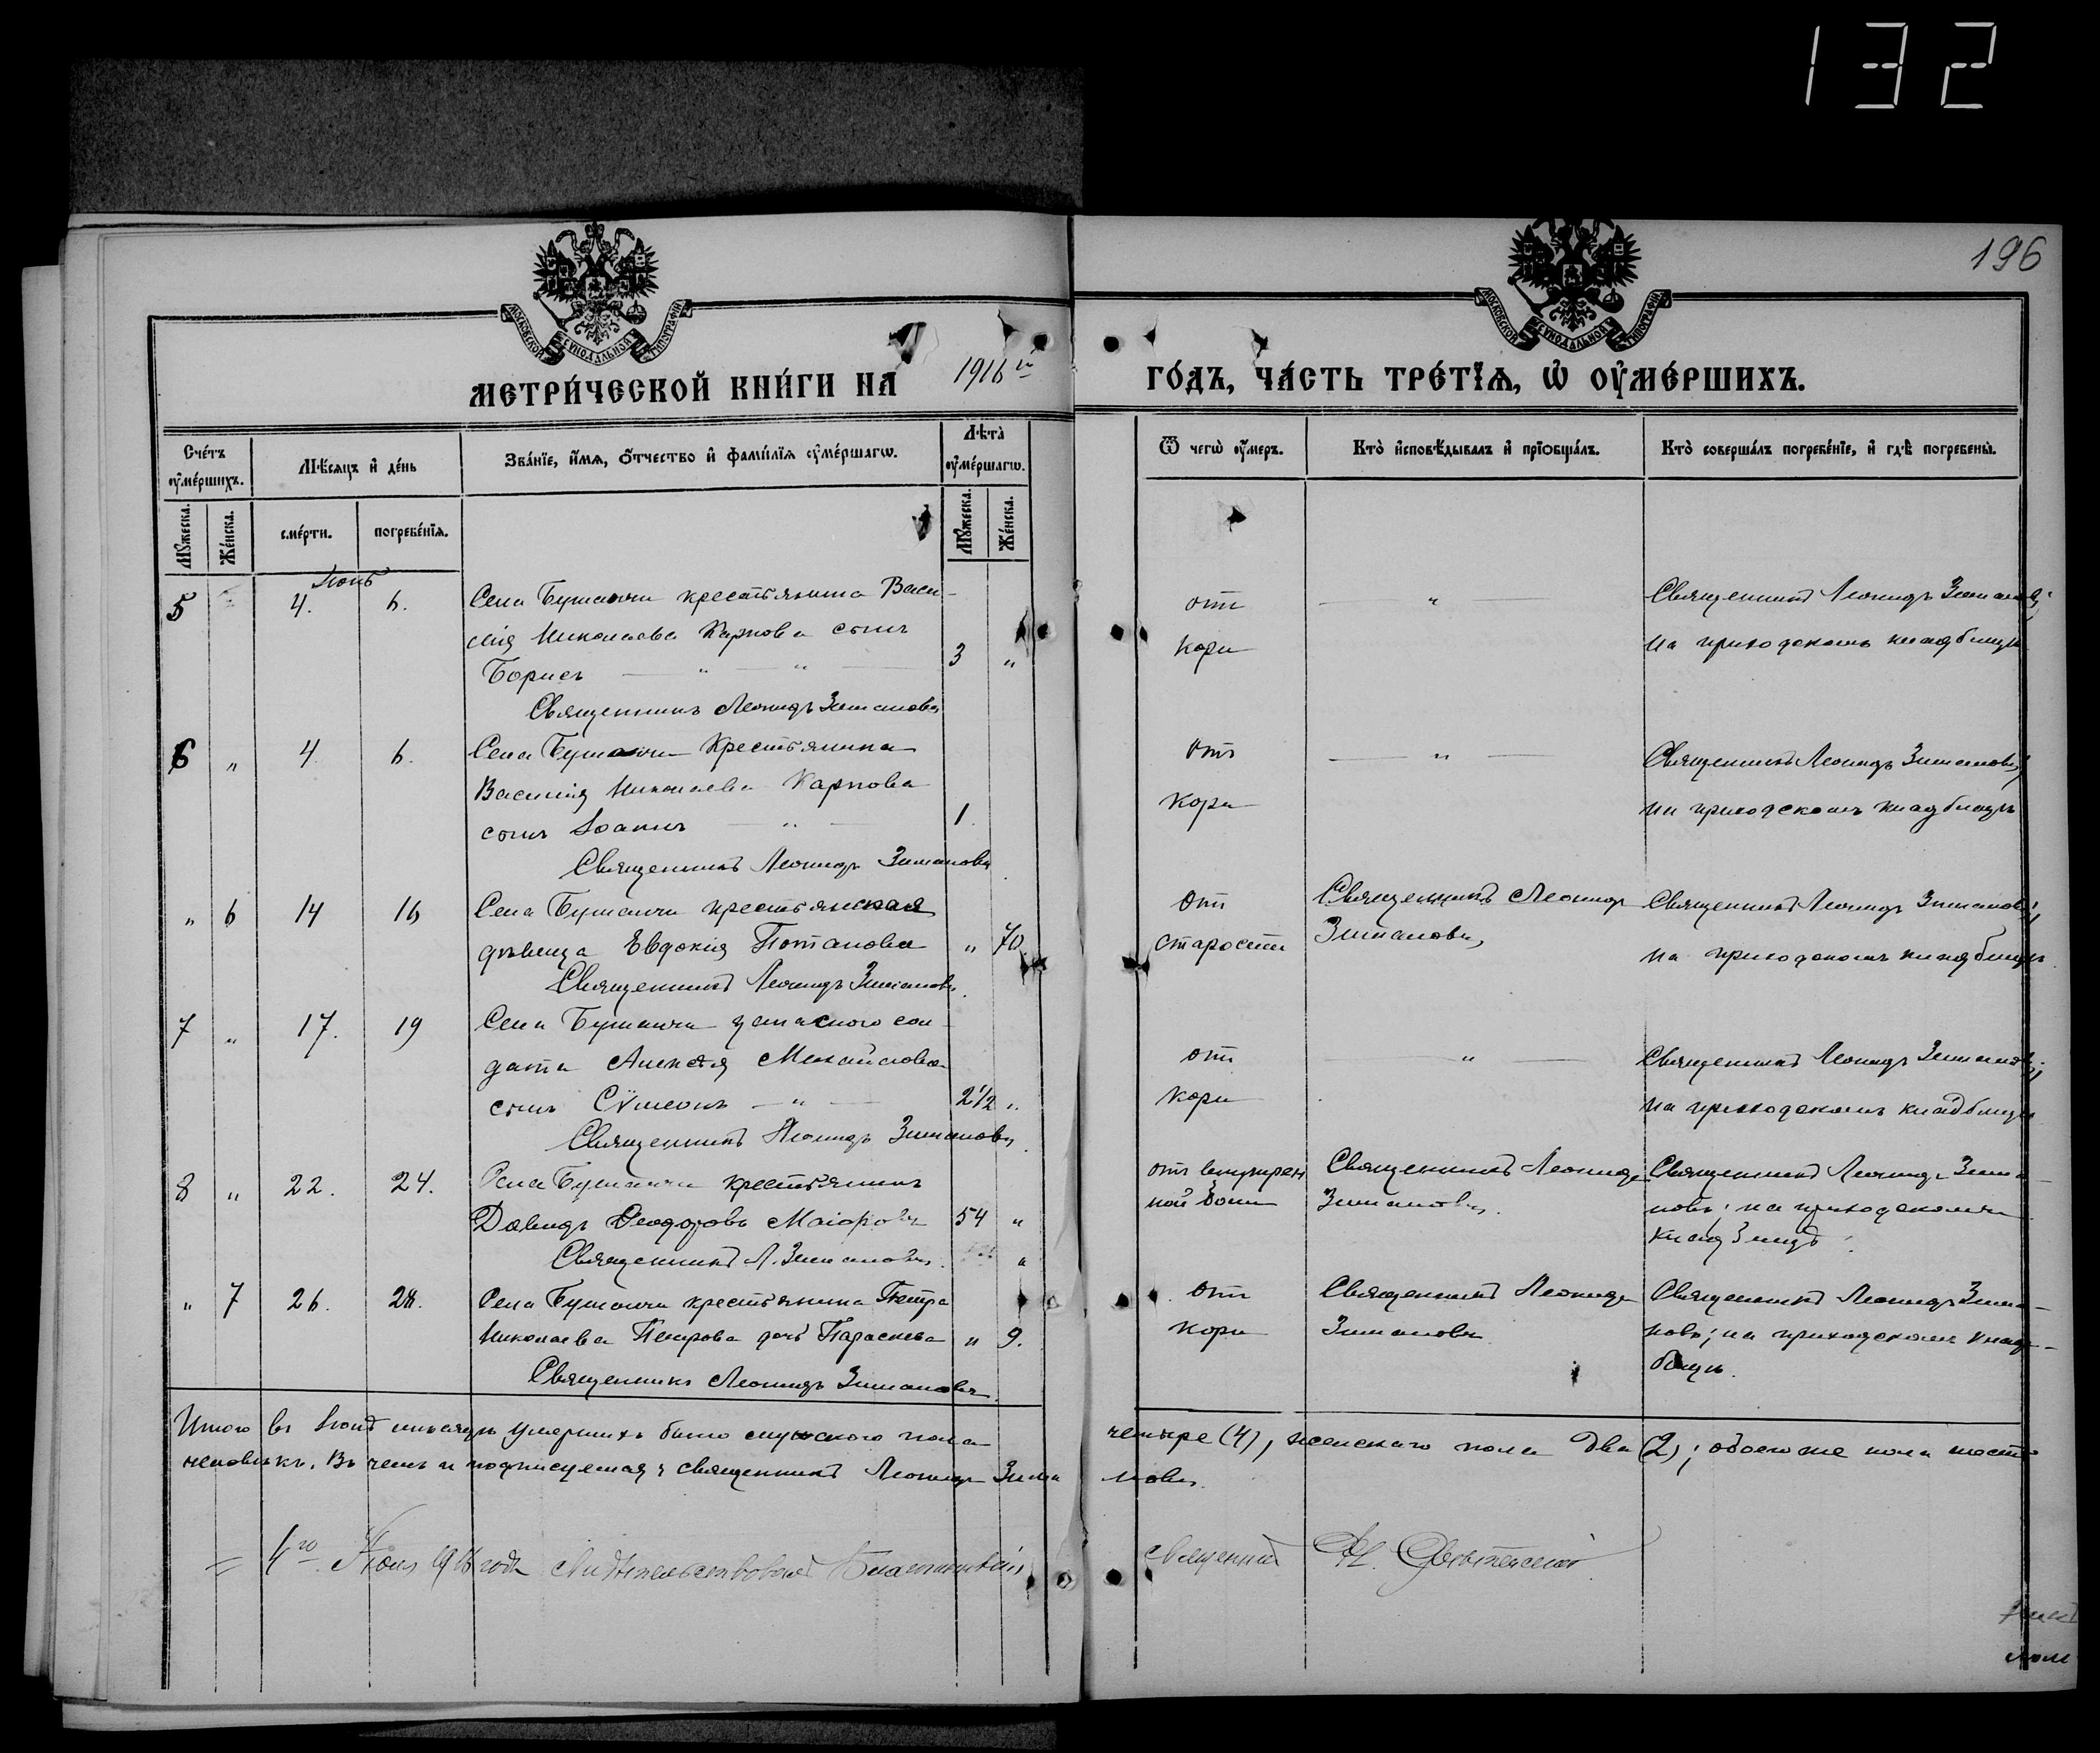 132
196
МОСКОВСКОЙ СУНОДАЛЬНОЙ ТИПОГРАФІИ
МОСКОВСКОЙ СУНОДАЛЬНОЙ ТИПОГРАФІИ
МЕТРИ́ЧЕСКОЙ КНИ́ГИ НА 1916й ГО́ДЪ, ЧА́СТЬ ТРЕ́ТІѦ, Ѡ ОУМЕ́РШИХЪ.
Сче́тъ оумершихъ.
Мужеска.
Же́нска.
Мѣсяцъ и де́нь
сме́рти.
погребе́нїя.
Зва́нїе, и́мя, о́тчество и фами́лїя оуме́ршагѡ.
Лѣта̀ оуме́ршагѡ.
Мужеска.
Же́нска.
Ѿ чегѡ̀ оумеръ.
Кто̀ исповѣдывалъ и прїобща́лъ.
Кто̀ соверша́лъ погребе́нїе, и гдѣ погребены̀.
Іюнь
5 4. 6. Села крестьянина Васи-
лія Николаева Карпова сынъ
Борисъ — " — " — 3 "
Священникъ Леонидъ Зимановъ
отъ
кори
— " —
Священникъ Леонидъ Зимановъ;
на приходскомъ кладбищѣ
6 " 4 6. Села крестьянина
Василія Николаева Карпова
сынъ Іоаннъ — " — 1.
Священникъ Леонидъ Зимановъ
отъ
кори
— " —
Священникъ Леонидъ Зимановъ;
на приходскомъ кладбищѣ
" 6 14 16 Села крестьянская
дѣвица Евдокія Потапова " 70.
Священникъ Леонидъ Зимановъ.
отъ
старости
Священникъ Леонидъ
Зимановъ,
Священникъ Леонидъ Зимановъ;
на приходскомъ кладбищѣ
7 " 17. 19 Села запасного сол-
дата Алексѣя Михайлова
сынъ Сѵмеонъ — " — 2½ "
Священникъ Леонидъ Зимановъ.
отъ
кори
— " —
Священникъ Леонидъ Зимановъ;
на приходскомъ кладбищѣ
8 " 22. 24. Села крестьянинъ
Давидъ Ѳеодоровъ Маіоровъ 54 "
Священникъ Л. Зимановъ.
отъ внутрен
ной боли
Священникъ Леонидъ
Зимановъ.
Священникъ Леонидъ Зима-
новъ; на приходскомъ
кладбищѣ.
" 7 26. 28. Села крестьянина Петра
Николаева Петрова дочь Параскева " 9.
Священникъ Леонидъ Зимановъ
отъ
кори
Священникъ Леонидъ
Зимановъ
Священникъ Леонидъ Зима-
новъ; на приходскомъ клад-
бищѣ.
Итого въ Іюнѣ мѣсяцѣ умершихъ было мужского пола четыре (4), женскаго пола два (2); обоего же пола шесть
человѣкъ. Въ чемъ и подписуемся: священникъ Леонидъ Зимановъ.
Іюля 1916 года Свидѣтельствовалъ Благочинный священникъ